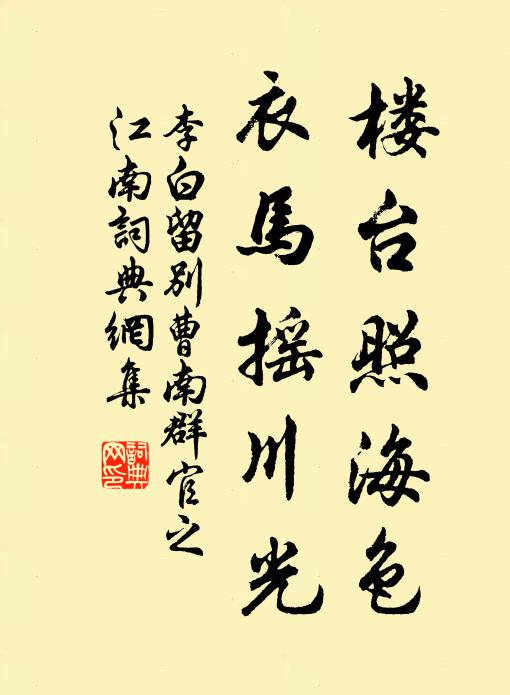 楼台照海色
衣馬摇川光
李白留别曹南群官之
江南詞典網集
詞典
网印